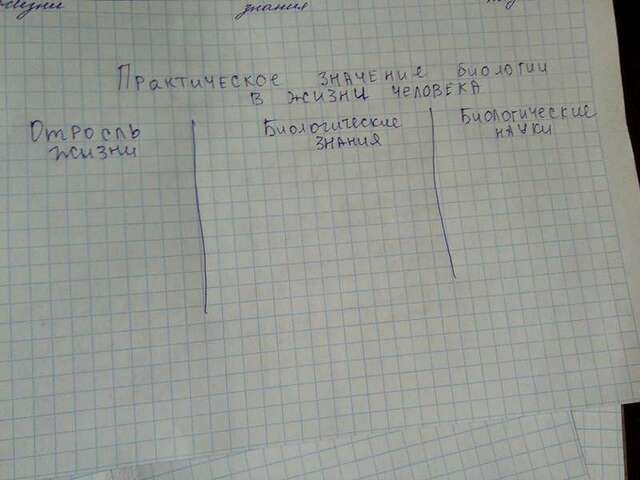 знания
Практическое значение биологии
в жизни человека
Отросль
жизни
Биологические
знания
Биологические
науки